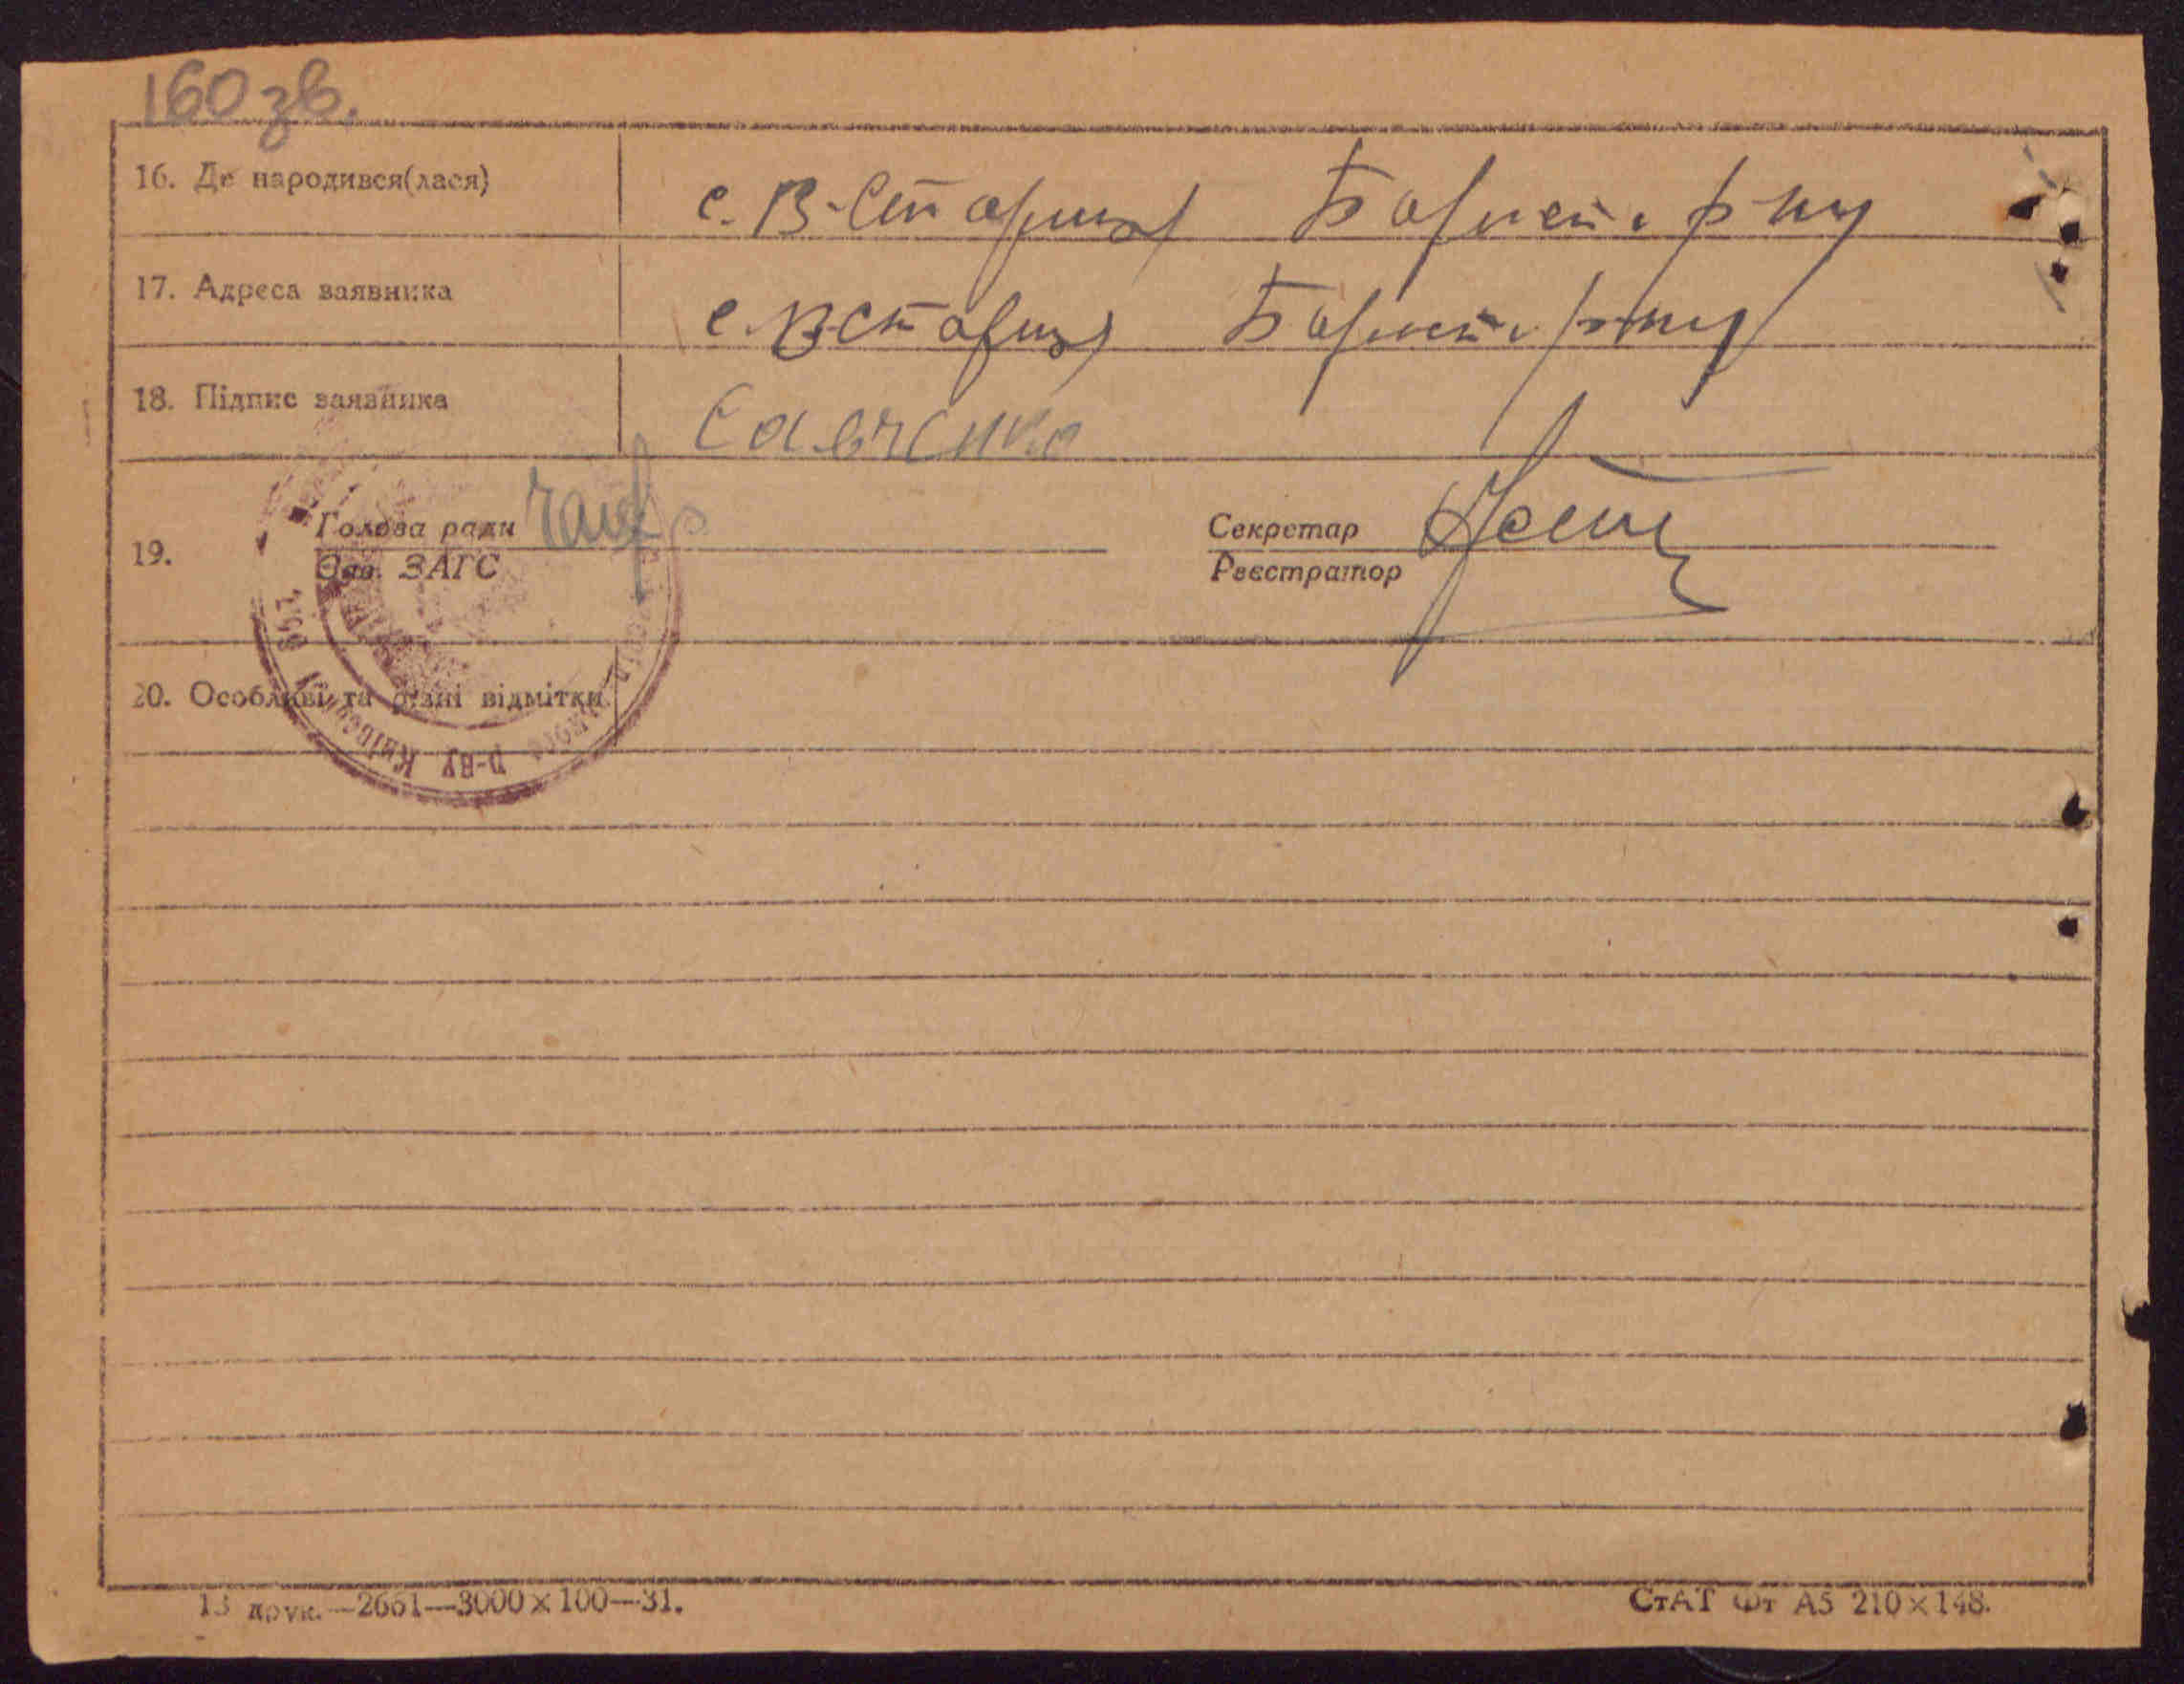 160 зв.
16. Де народився(лася) с. В-Стариця Борисп. р-ну
17. Адреса заявника с. В-Стариця Борисп. р-ну
18. Підпис заявника Савченко
19. Голова ради Секретар
Зав. ЗАГС Реєстратор
20. Особливі та різні відмітки
р-ну Київської обл.
13 друк.—2661—3000×100—31.
СтАТ Фт А5 210×148.